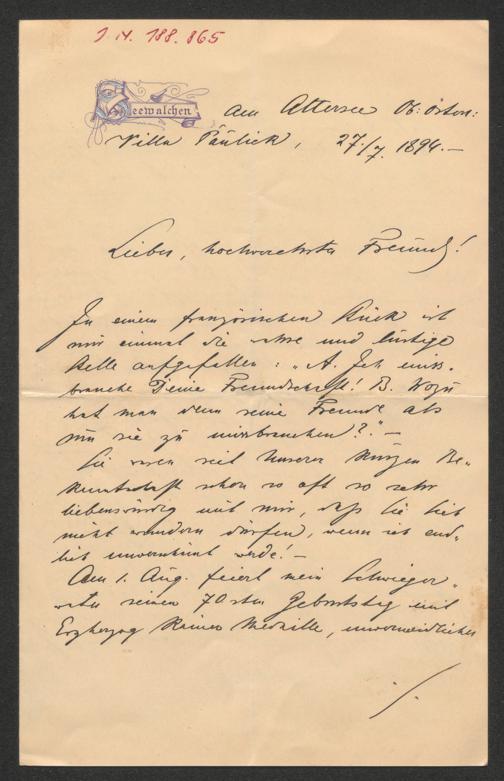 J. N. 188.865
Seewalchen am Attersee Ob: Östen:
Villa Paulick, 27./7. 1894.—
Lieber, hochverehrter Freund!
In einem französischen Stück ist
mir einmal die wahre und lustige
Stelle aufgefallen: „A. Ich miss-
brauche Deine Freundschaft! B. Wozu
hat man denn seine Freunde als
um sie zu missbrauchen?" —
Sie waren seit unserer kurzen Be-
kanntschaft schon so oft so sehr
liebenswürdig mit mir, daß Sie sich
nicht wundern dürfen, wenn ich end-
lich unverschämt werde! —
Am 1. Aug. feiert mein Schwieger-
vater seinen 70sten Geburtstag mit
Erzherzog Rainer Medaille, unvermeidlicher
./.